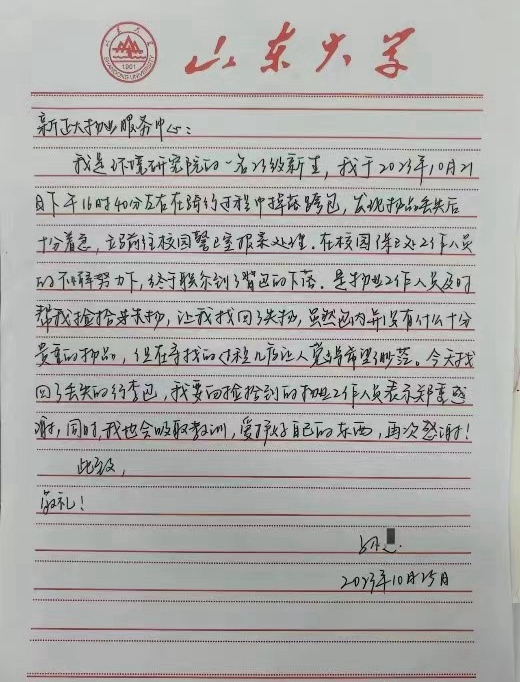 山东大学
SHANDONG UNIVERSITY
1901
山东大学
新正大物业服务中心：
我是环境研究院的一名23级新生，我于2023年10月21
日下午16时40分左右在骑行过程中掉落跨包，发现物品丢失后
十分着急，立马前往校园警卫室报案处理。在校园保卫处工作人员
的不懈努力下，终于联系到了背包的下落。是物业工作人员及时
帮我捡拾失物，让我找回了失物，虽然包内并没有什么十分
贵重的物品，但在寻找的过程几度让人觉得希望渺茫。今天找
回了丢失的行李包，我要向捡拾到的物业工作人员表示郑重感
谢，同时，我也会吸取教训，爱护好自己的东西，再次感谢！
此致，
敬礼！
2023年10月25日